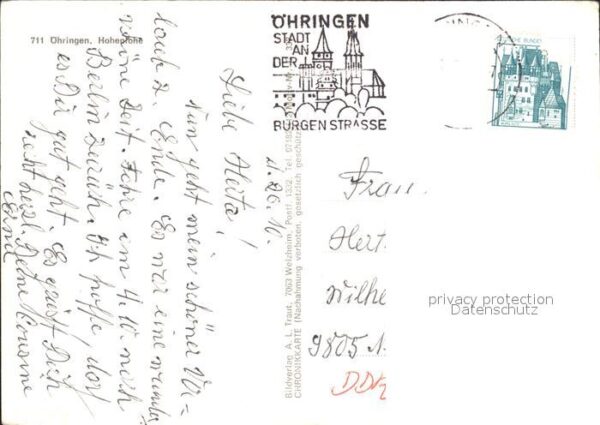 711 Öhringen, Hohenlohe
ÖHRINGEN
STADT
AN
DER
BURGENSTRASSE
DEUTSCHE BUNDESPOST
Liebe Herta!
Nun geht mein schöner Ur-
laub z. Ende. Es war eine wunder-
schöne Zeit. Fahre am 4.10. nach
Berlin zurück. Ich hoffe, daß
es Dir gut geht. Es grüßt Dich
recht herzl. Deine Cousine
Erna
Bildverlag A. L. Traut, 7063 Welzheim, Postf. 1302, Tel.
CHRONIKKARTE (Nachahmung verboten, gesetzlich geschützt
Frau
Hert
Wilhe
9805
DDR
privacy protection
Datenschutz